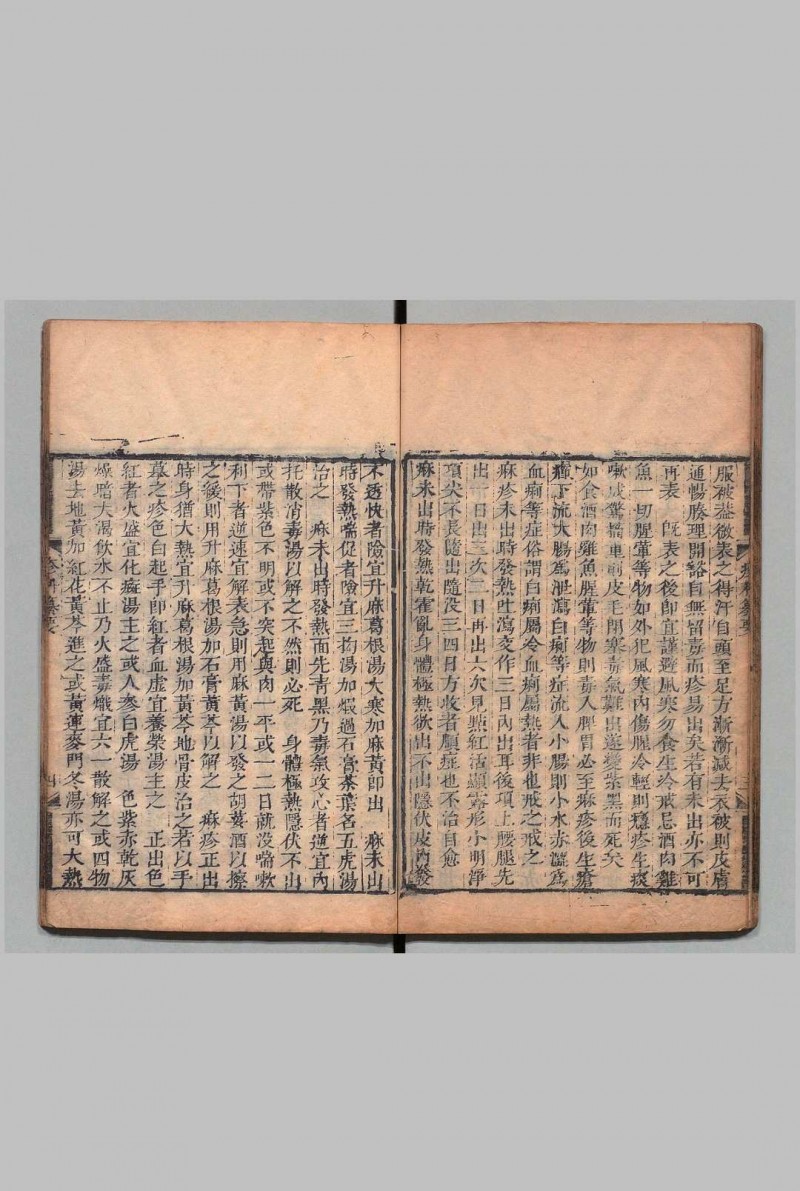 服被蓋微表之得汗自頭至足方漸漸減去衣被則皮膚
通暢腠理開豁自無留毒而疹易出矣若有未出亦不可
再表 既表之後即宜謹避風寒勿食生冷戒忌酒肉雞
魚一切腥葷等物如外犯風寒內傷腥冷輕則癮疹生痰
嗽成驚搐重則皮毛閉寒毒氣難出遂變紫黑而死矣
如食酒肉雞魚腥葷等物則毒入脾胃必至麻疹後生瘡
癤下流大腸為泄瀉白痢等症流入小腸則小水赤澀為
血痢等症俗謂白痢屬冷血痢屬熱者非也戒之戒之
麻疹未出時發熱吐瀉交作三日內出耳後項上腰腿先
出一日出三次二日再出六次見點紅活顯露形小明淨
頂尖不長隨出隨没三四日方收者順症也不治自愈
麻未出時發熱乾霍亂身體極熱欲出不出隱伏皮內發
疹科纂要
不透快者險宜升麻葛根湯大寒加麻黃即出 麻未出
時發熱喘促者險宜三拗湯加煅過石膏茶葉名五虎湯
治之 麻未出時發熱面先青黑乃毒氣攻心者逆宜內
托散消毒湯以解之不然則必死 身體極熱隱伏不出
或帶紫色不明或不突起與肉一平或一二日就没喘嗽
利下者逆速宜解表急則用麻黃湯以發之胡荽酒以擦
之緩則用升麻葛根湯加石膏黃芩以解之 麻疹正出
時身猶大熱宜升麻葛根湯加黃芩地骨皮治之若以手
摹之疹色白起手即紅者血虛宜養榮湯主之 正出色
紅者火盛宜化癍湯主之或人參白虎湯 色紫赤乾灰
燥暗大渴飲水不止乃火盛毒熾宜六一散解之或四物
湯去地黃加紅花黃芩進之或黃連麥門冬湯亦可大熱
疹科纂要
四